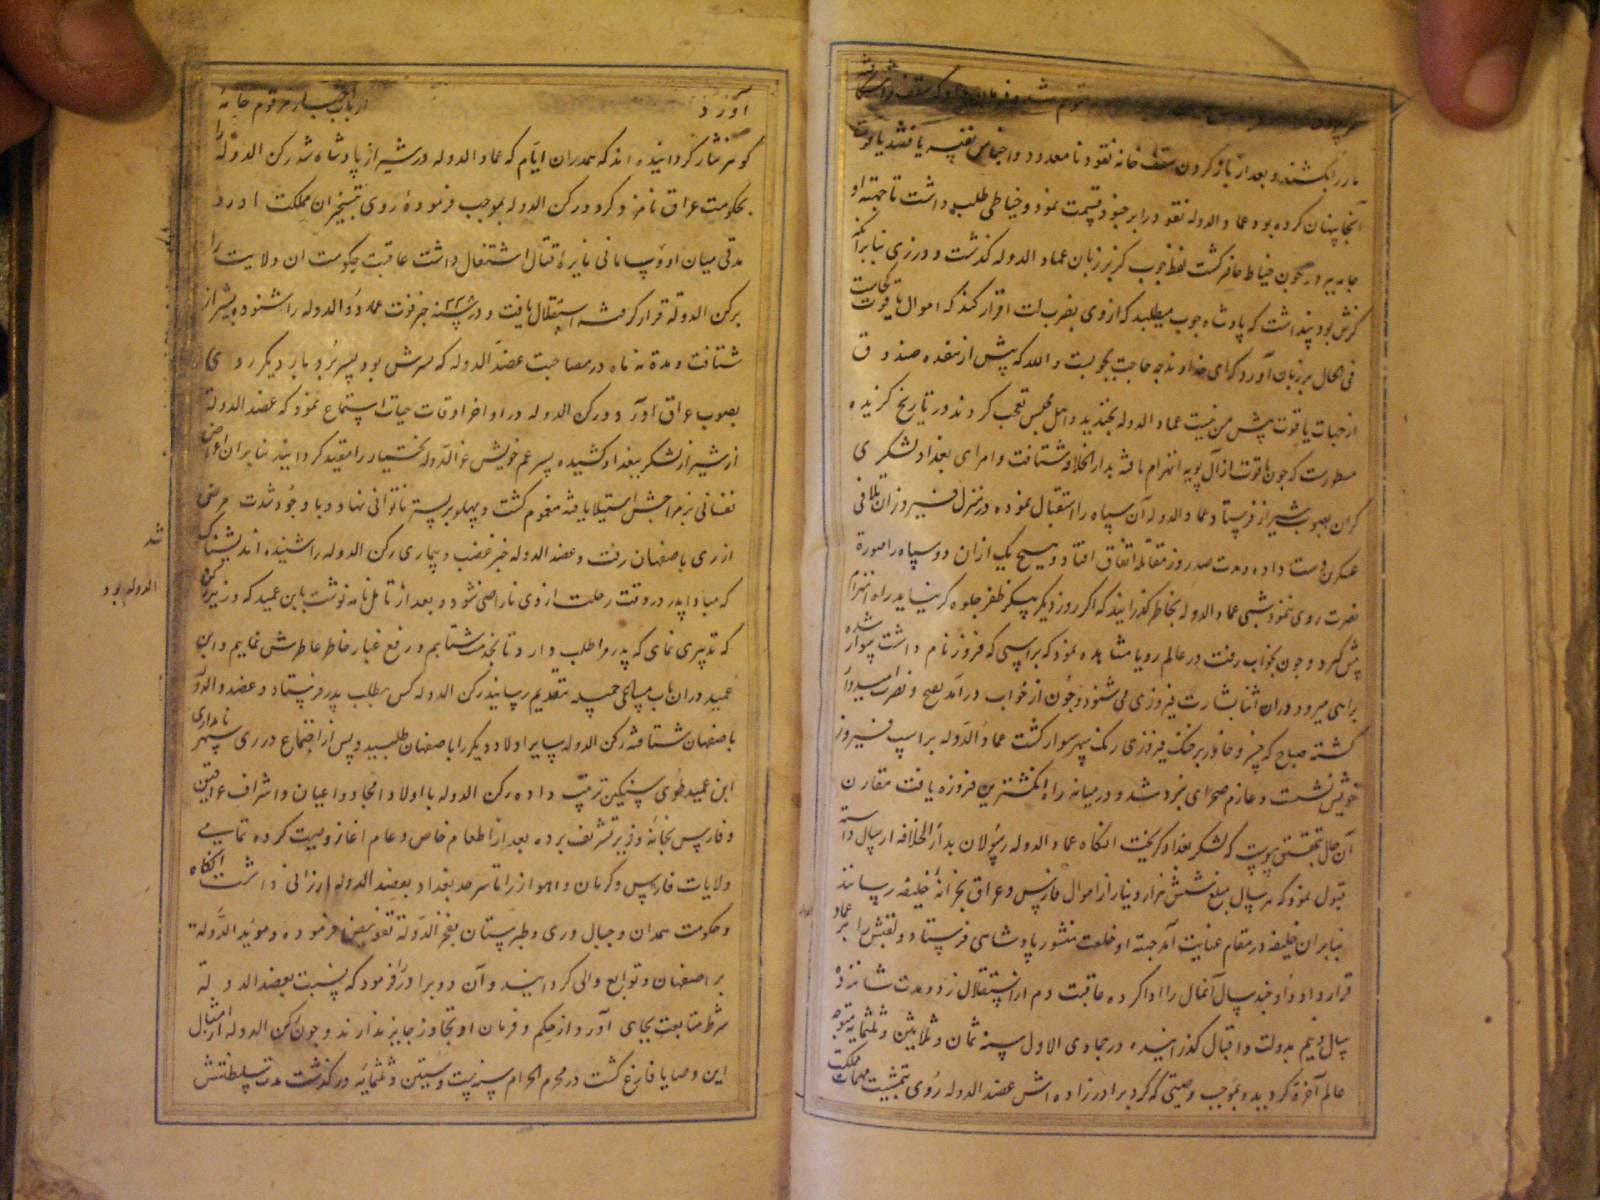 مار را بکشند و بعد از باز کردن سقف خانه نقود نامعدود و اجناس نفیسه یافتند یاقوت
آنجا پنهان کرده بود عماد الدوله نقود را بر جنود قسمت نمود و خیاطی طلب داشت تا جهته او
جامه ببرد چون خیاط حاضر گشت لفظ چوب کز بر زبان عماد الدوله گذشت و درزی بنابر آنکه
کرش بود پنداشت که پادشاه چوب میطلبد که از وی بضرب لت اقرار کند که اموال یاقوت کجاست
فی الحال بر زبان آورد که ای خداوند چه حاجت بچوبست والله که پیش از هفده صندوق
از جهات یاقوت پیش من نیست عماد الدوله بخندید و اهل مجلس تعجب کردند در تاریخ گزیده
مسطورست که چون یاقوت از آل بویه انهزام یافته بدار الخلافه شتافت و امرای بغداد لشکری
گران بصوب شیراز فرستاد عماد الدوله آن سپاه را استقبال نموده در منزل فیروزان تلاقی
عسکرین دست داده و مدت صد روز مقاتله اتفاق افتاد و هیچ یک ازان دو سپاه را صورة
نصرت روی ننمود شبی عماد الدوله بخاطر گذرانید که اگر روز دیگر پیکر ظفر جلوه گر نیاید راه انهزام
پیش گیرد و چون بخواب رفت در عالم رویا مشاهده نمود که بر اسپی که فیروز نام داشت سوار شده
براهی میرود و دران اثنا بشارت فیروزی می شنود و چون از خواب درآمد بفتح و نصرت امیدوار
گشته صباح که خسرو خاور بر خنگ فیروزی رنگ سپهر سوار گشت عماد الدوله بر اسپ فیروز
خویش نشست و عازم صحرای نبرد شد و در میانه راه انگشترین فیروزه یافت مقارن
آن حال بتحقیق پیوست که لشکر بغداد گریخت آنگاه عماد الدوله رسولان بدار الخلافه ارسال داشته
قبول نمود که هر سال مبلغ ششش هزار دینار از اموال فارس و عراق بخزانهٔ خلیفه رساند
بنابران خلیفه در مقام عنایت آمد جهته او خلعت منشور پادشاهی فرستاد و لقبش را بر عماد
قرار داد و او چند سال آنمال را ادا کرده عاقبت دم از استقلال زد و مدت شانزده
سال و نیم بدولت و اقبال گذرانیده در جمادی الاول سنه ثمان و ثلاثین و ثلثمایه متوجه
عالم آخرة گردید و بموجب وصیتی که کرد برادرزاده اش عضد الدوله روی بتمشیت مهمات مملکت
آورد ارباب اخبار مرقوم خامهٔ
گوهر نثار گردانیده اند که هم دران ایام که عماد الدوله در شیراز پادشاه شد رکن الدوله را
بحکومت عراق نامزد کرد و رکن الدوله بموجب فرموده روی بتسخیر ان مملکت اورد
مدتی میان او و سامانی نایرهٔ قتال اشتغال داشت عاقبت حکومت ان ولایت را
برکن الدوله قرار گرفته استقلال یافت و در سنه ۳۳۸ خبر فوت عماد الدوله را شنوده بشیراز
شتافت و مدة نه ماه در مصاحبت عضد الدوله که پسرش بود بسر برد و بار دیگر روی
بصوب عراق آورد و رکن الدوله در اواخر اوقات حیات استماع نمود که عضد الدولة
از شیراز لشکر ببغداد کشیده پسر عم خویش عز الدوله بختیار را مقید گردانید بنابران اعراض
نفسانی بر مزاجش استیلا یافته مغموم گشت و پهلو بر بستر ناتوانی نهاد و با وجود شدت مرض
از ری باصفهان رفت و عضد الدوله خبر غضب و بیماری رکن الدوله را شنیده اندیشناک شد
که مبادا پدر در وقت رحلت از وی ناراضی شود و بعد از تامل نامه نوشت بابن عمید که وزیر رکن الدوله بود
که تدبیری نمای که پدر مرا طلب دارد تا بخدمت شتابم و رفع غبار خاطر عاطرش نمایم و ابن
عمید دران باب مساعی جمیله بتقدیم رسانید رکن الدوله کس بطلب پسر فرستاد و عضد الدوله
باصفهان شتافته رکن الدوله سایر اولاد دیگر را باصفهان طلبید و پس از اجتماع دراری سپهر نامداری
ابن عمید طوی سنگین ترتیب داده رکن الدوله با اولاد امجاد و اعیان و اشراف عراقین
و فارس بخانهٔ وزیر تشریف برده بعد از اطعام خاص و عام اغاز وصیت کرده تمامی
ولایات فارس و کرمان و اهواز را تا سرحد بغداد بعضد الدوله ارزانی داشت آنگاه
و حکومت همدان و جبال و ری و طبرستان بفخر الدولة تفویض فرموده و موید الدوله
بر اصفهان و توابع والی گردانید و آن دو برادر را فرمود که نسبت بعضد الدوله
شرط متابعت بجای آورد و از حکم و فرمان او تجاوز جایز ندارند و چون رکن الدوله از امثال
این وصایا فارغ گشت در محرم الحرام سنه ست و ستین و ثلثمائه درگذشت مدت سلطنتش